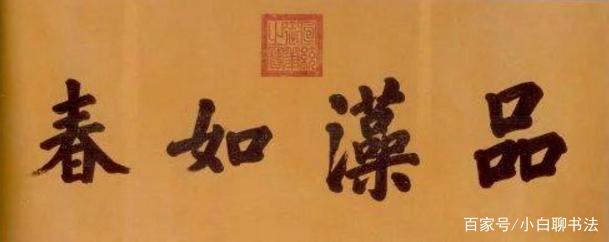 品藻如春
百家号/小白聊书法